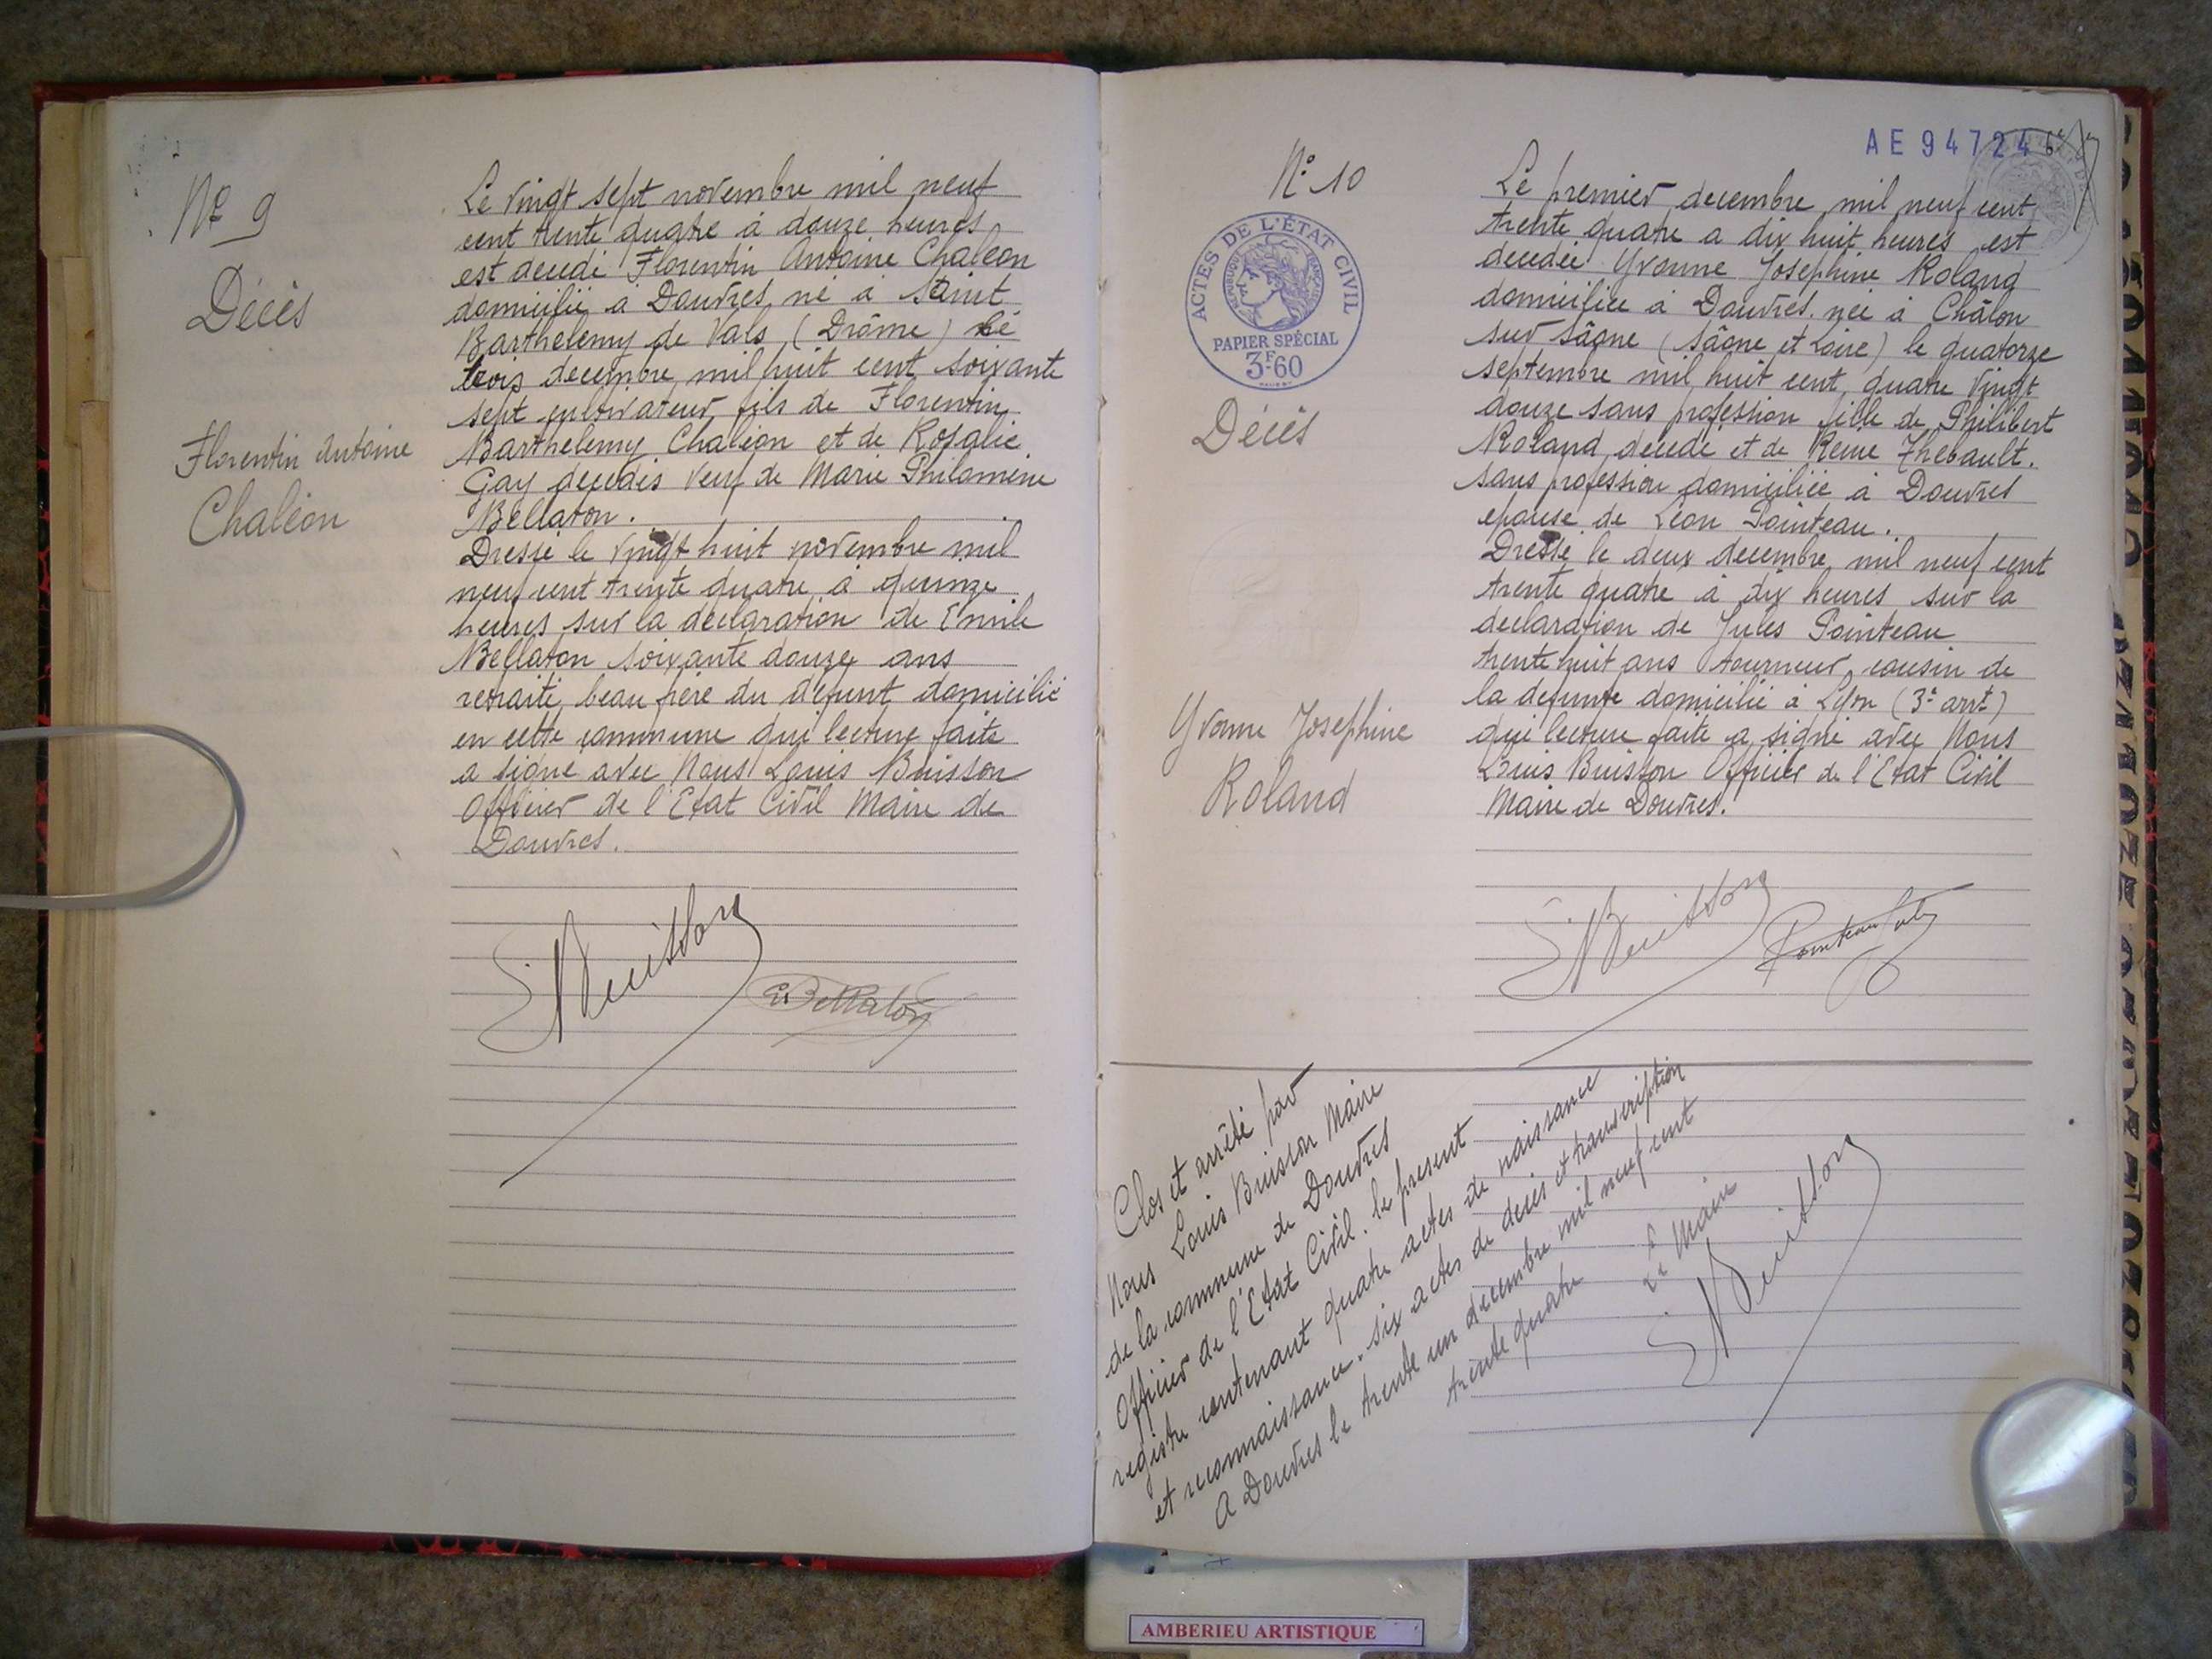 Nº 9
Décès
Florentin Antoine
Chaléon
Le vingt sept novembre mil neuf
cent trente quatre à douze heures
est decedé Florentin Antoine Chaleon
domicilié à Douvres né à Saint
Barthelemy de Vals (Drôme) le
trois decembre mil huit cent soixante
sept cultivateur fils de Florentin
Barthelemy Chaléon et de Rosalie
Gay decedés veuf de Marie Philomène
Bellaton.
Dressé le vingt huit novembre mil
neuf cent trente quatre à quinze
heures sur la déclaration de Emile
Bellaton soixante douze ans
retraité, beau frère du défunt domicilié
en cette commune qui lecture faite
a signé avec Nous Louis Buisson
Officier de l'Etat Civil Maire de
Douvres.
Buisson
E Bellaton
AE 94724
Nº 10
ACTES DE L'ÉTAT CIVIL
RÉPUBLIQUE FRANÇAISE
PAPIER SPÉCIAL
3F·60
Décès
Yvonne Josephine
Roland
Le premier decembre mil neuf cent
trente quatre a dix huit heures est
decedée Yvonne Josephine Roland
domiciliée à Douvres née à Châlon
sur Sâone (Sâone et Loire) le quatorze
septembre mil huit cent quatre vingt
douze sans profession fille de Philibert
Roland décedé et de Reine Thebault.
sans profession domiciliée à Douvres
epouse de Léon Pointeau.
Dressé le deux decembre mil neuf cent
trente quatre à dix heures sur la
declaration de Jules Pointeau
trente huit ans tourneur, cousin de
la defunte domicilié à Lyon (3e arrt)
qui lecture faite a signé avec Nous
Louis Buisson Officier de l'Etat Civil
Maire de Douvres.
Buisson
Pointeau Jules
Clos et arrêté par
Nous Louis Buisson Maire
de la commune de Douvres
Officier de l'Etat Civil. le present
registre contenant quatre actes de naissance
et reconnaissance. six actes de décès et transcription
A Douvres le trente un decembre mil neuf cent
trente quatre
Le Maire
Buisson
AMBERIEU ARTISTIQUE